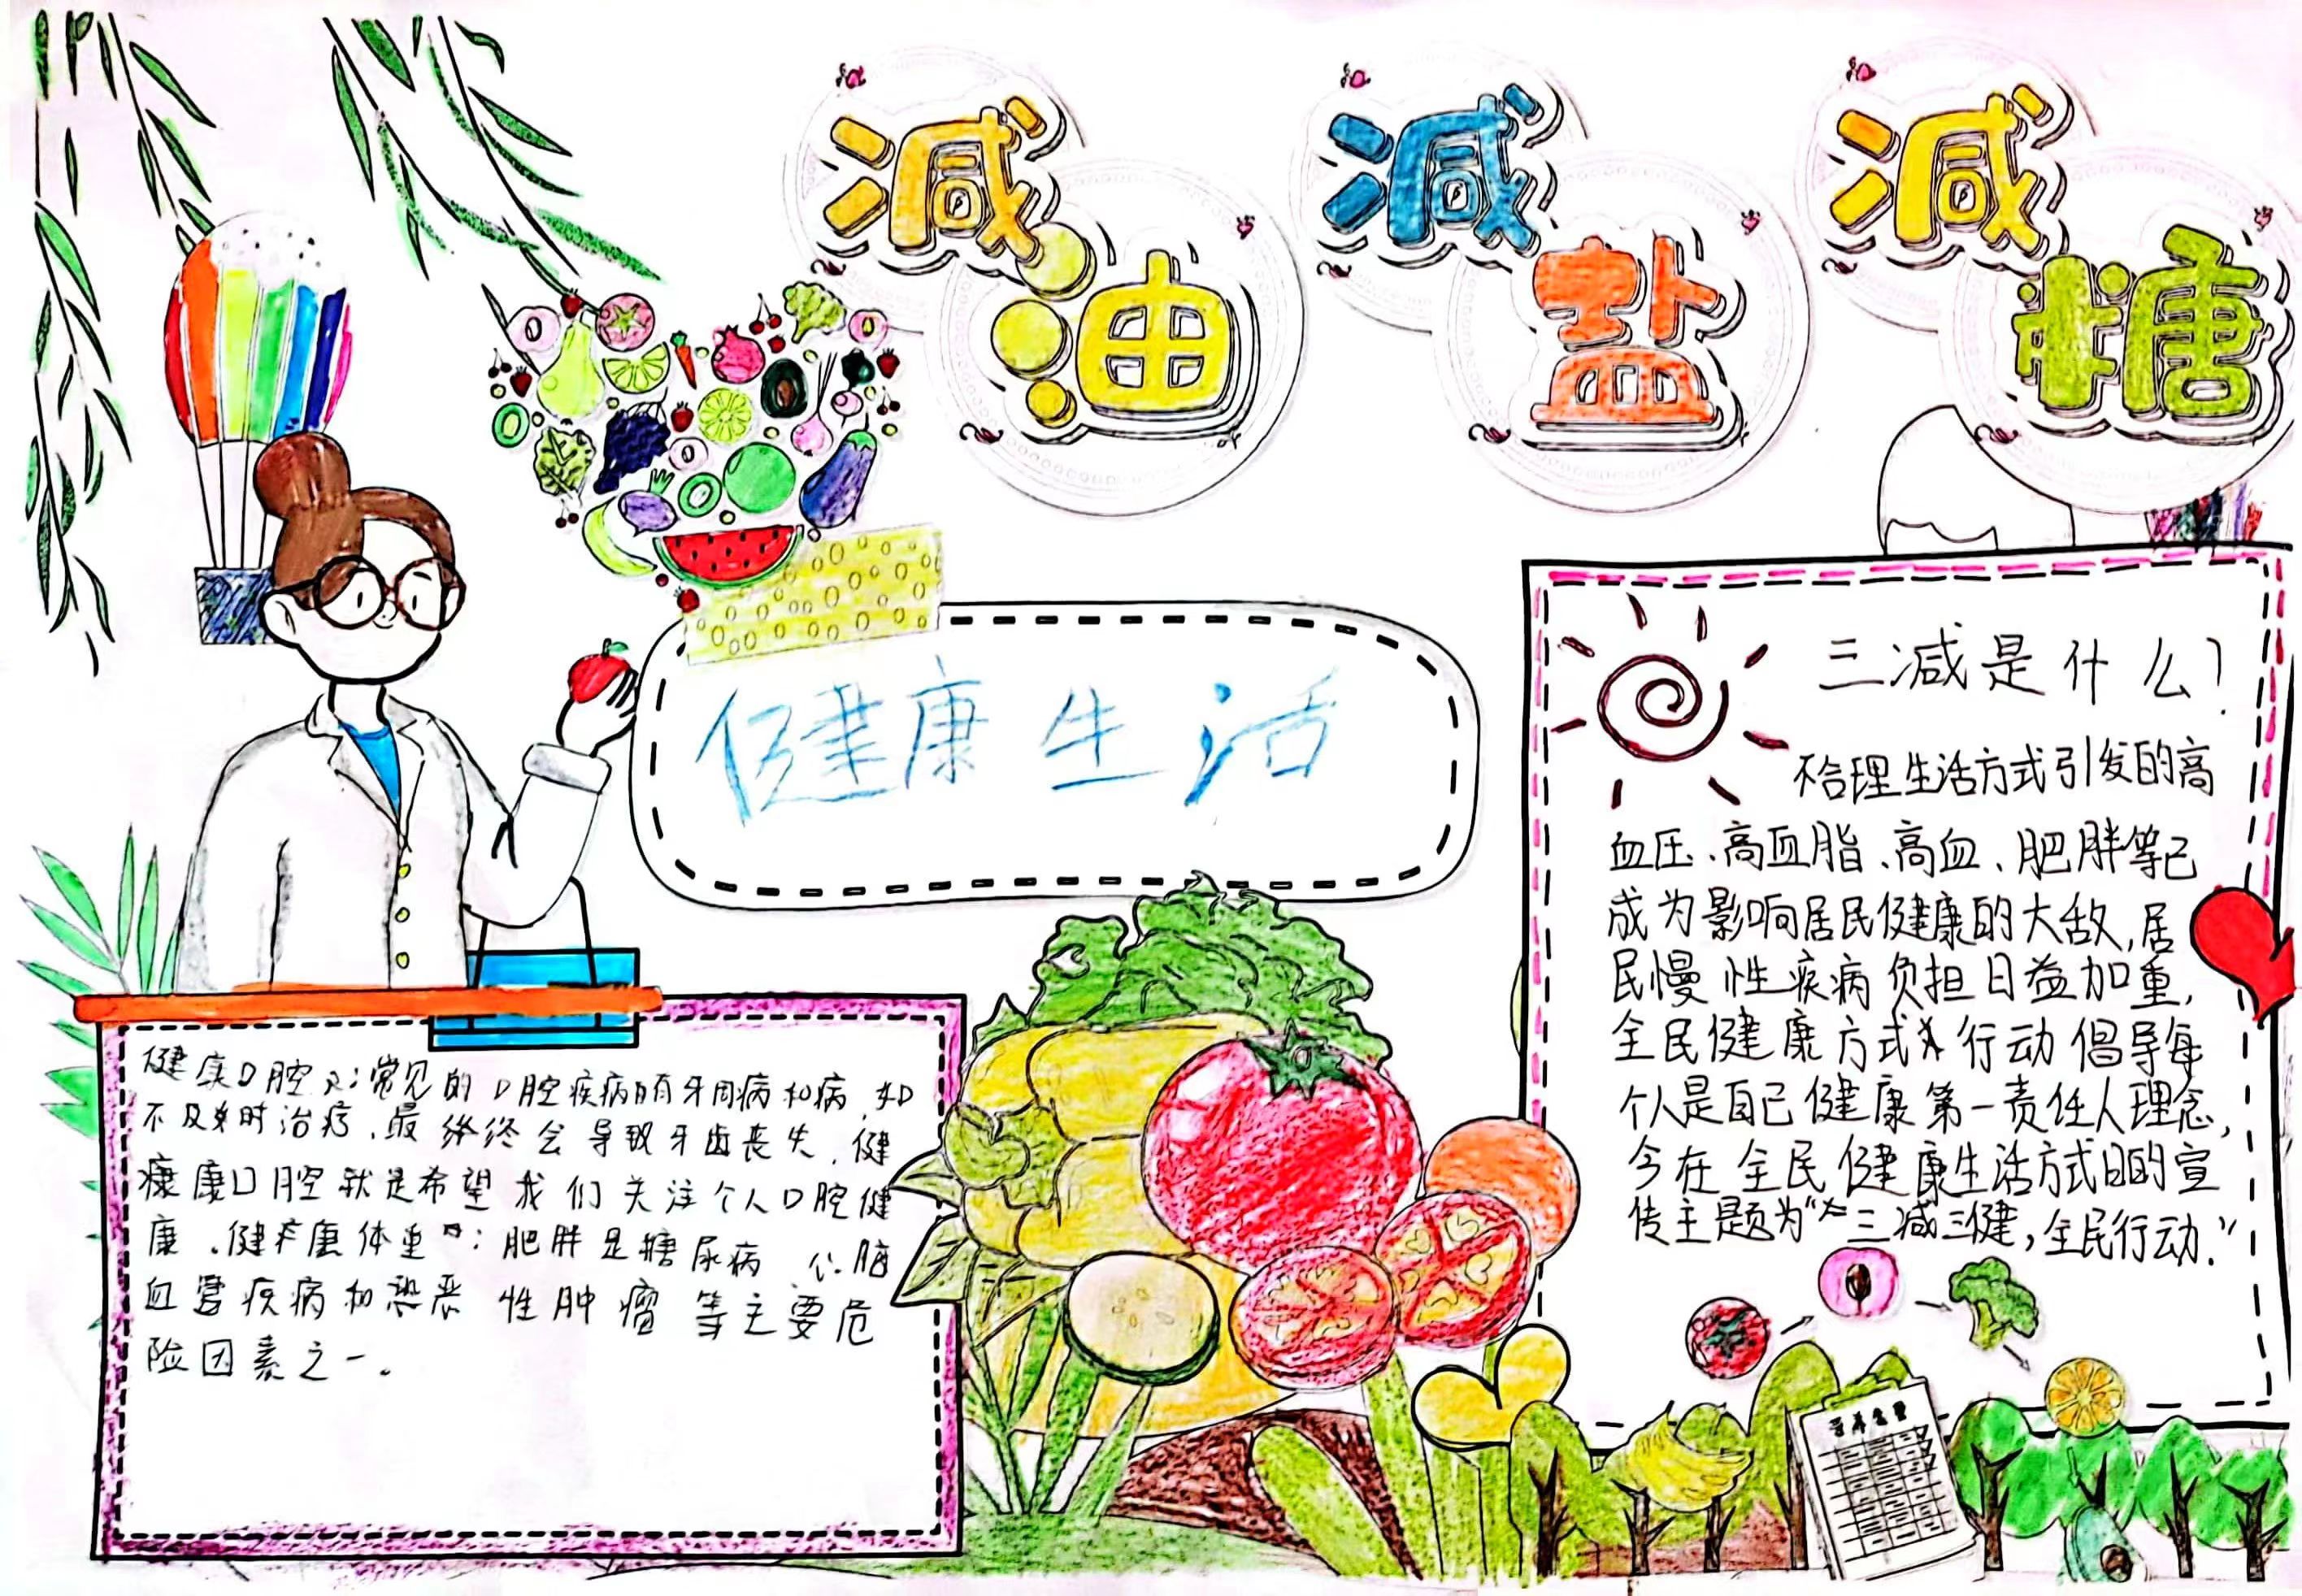 减油
减盐
减糖
健康生活
三减是什么？
不合理生活方式引发的高
血压、高血脂、高血、肥胖等已
成为影响居民健康的大敌，居
民慢性疾病负担日益加重，
全民健康方式行动倡导每
个人是自己健康第一责任人理念，
今在全民健康生活方式日的宣
传主题为“三减三健，全民行动.”
健康口腔：常见的口腔疾病有牙周病和病，如
不及时治疗，最终会导致牙齿丧失，健
康口腔就是希望我们关注个人口腔健
康。健康体重：肥胖是糖尿病、心脑
血管疾病和恶性肿瘤等主要危
险因素之一。